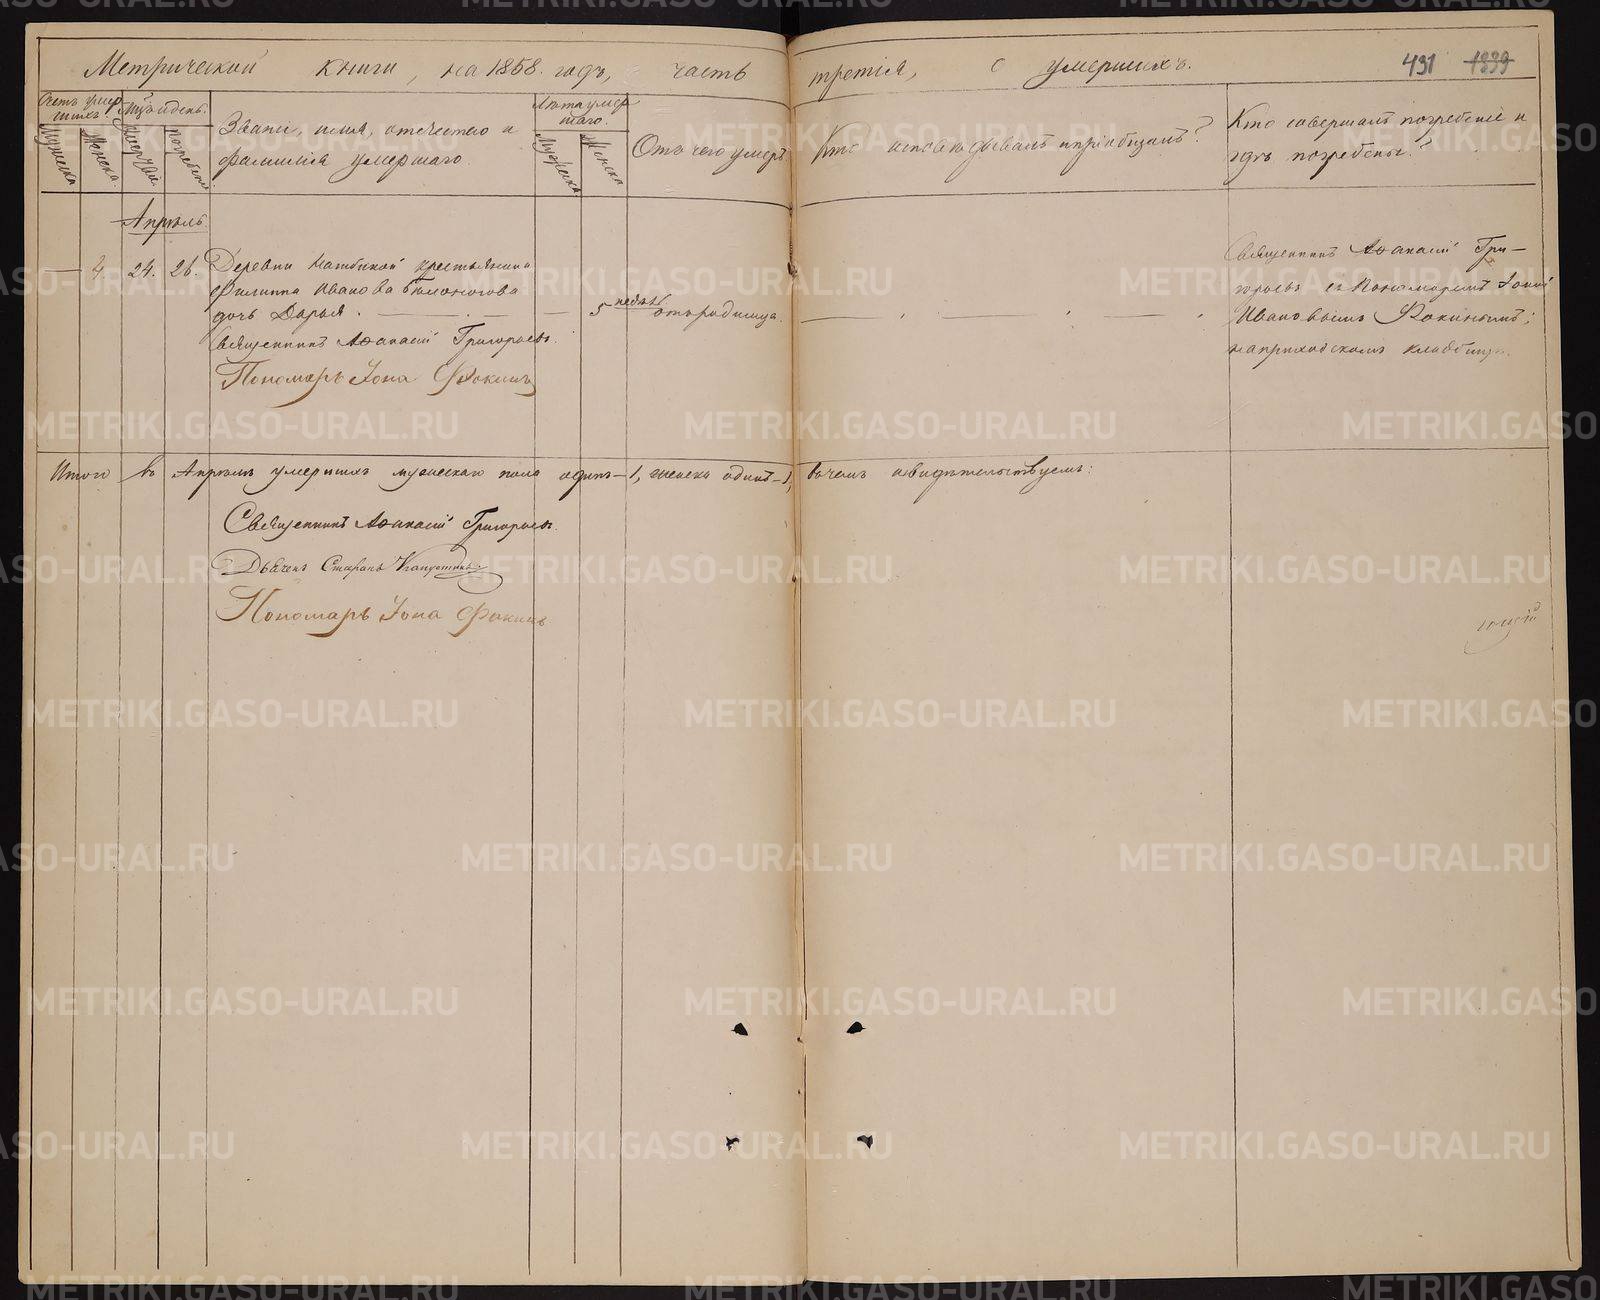 Метрической книги, на 1858. годъ, часть третія, о умершихъ.
431 1339
Счетъ умер
шихъ.
Мужеска
Женска
М-цъ и день.
Умертвія
Погребен
Званіе, имя, отчество и
фамилія умершаго.
Лѣта умер
шаго.
Мужеска
Женска
Отъ чего умеръ
Кто исповѣдывалъ и пріобщалъ?
Кто совершалъ погребеніе и
гдѣ погребены?
Апрѣль
— 4. 24. 26. Деревни крестьянина
Филиппа Иванова Бѣлоногова
дочь Дарья. — 5 недѣль отъ родимца.
Священникъ Аѳанасій Григорьевъ.
Пономарь Іона Фокинъ
Священникъ Аѳанасій Гри-
горьевъ съ Пономаремъ Іоной
Ивановымъ Фокинымъ;
на приходскомъ кладбищѣ.
Итого въ Апрѣлѣ умершихъ мужескаго пола одинъ — 1, женска одинъ — 1, въ чемъ и свидѣтельствуемъ:
Священникъ Аѳанасій Григорьевъ.
Дьячекъ Капустинъ
Пономарь Іона Фокинъ
METRIKI.GASO-URAL.RU